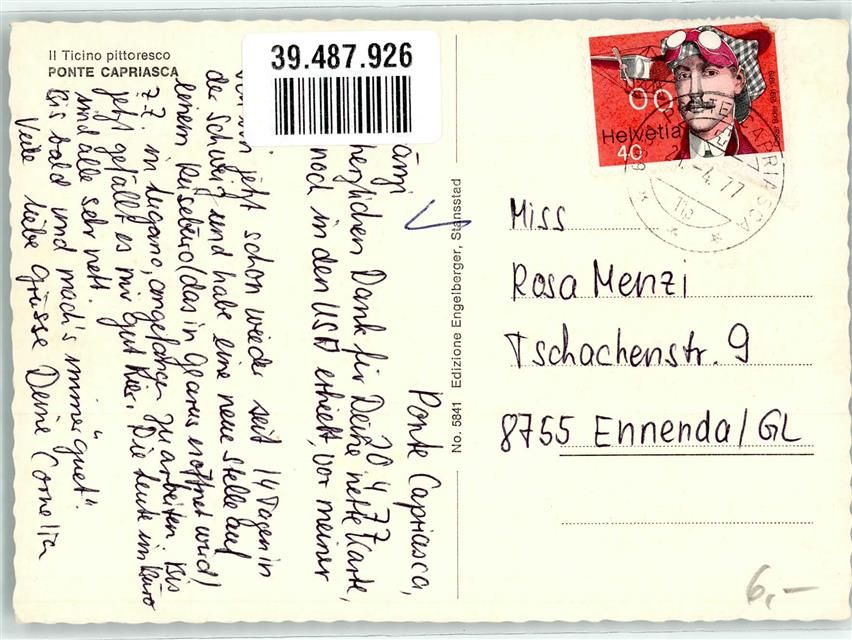 Il Ticino pittoresco
PONTE CAPRIASCA
39.487.926
Ponte Capriasca,
20.4.77
herzlichen Dank für Deine nette Karte,
noch in den USA erhielt, vor meiner
jetzt schon wieder seit 14 Tagen in
der Schweiz und habe eine neue Stelle auf
einem Reisebüro (das in Glarus eröffnet wird)
in Lugano, angefangen zu arbeiten. Bis
jetzt gefällt es mir gut hier. Die Leute im Büro
sind alle sehr nett.
Bis bald und mach's immer guet".
Viele liebe Grüsse Deine Cornelia
No. 5841 Edizione Engelberger, Stansstad
Helvetia
40
PONTE CAPRIASCA
-4.77
Miss
Rosa Menzi
Tschachenstr. 9
8755 Ennenda/GL
6,-